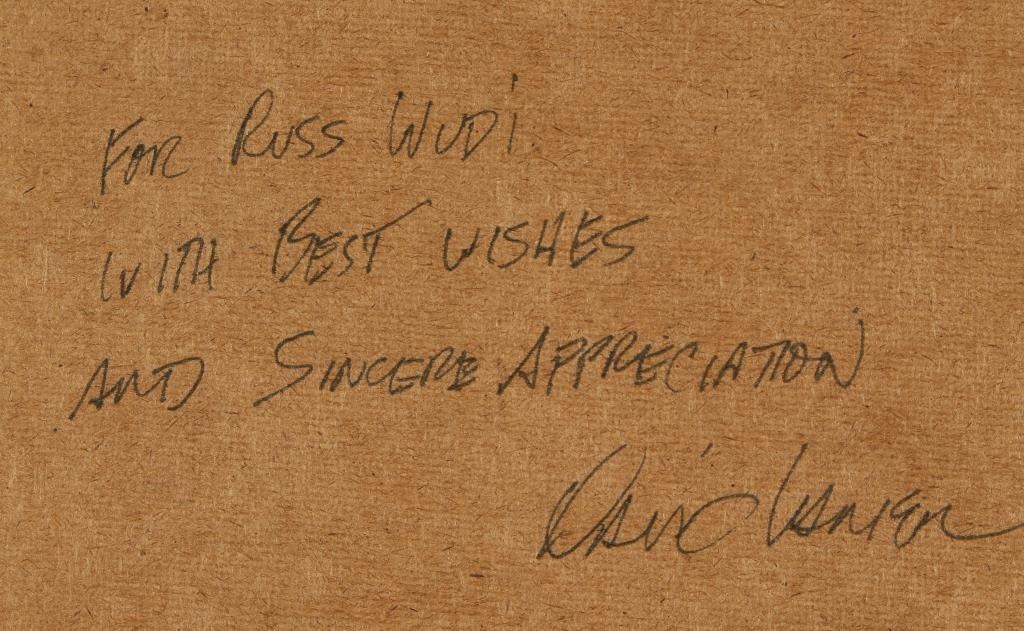 FOR RUSS WUDI
WITH BEST WISHES
AND SINCERE APPRECIATION